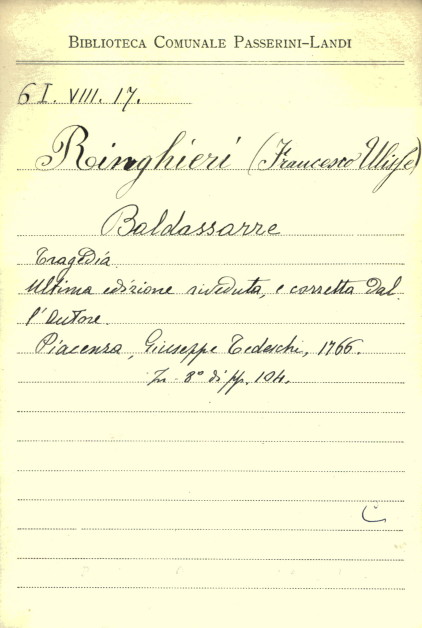 BIBLIOTECA COMUNALE PASSERINI-LANDI
6 I. VIII. 17.
Ringhieri (Francesco Ulisse)
Baldassarre
Tragedia
Ultima edizione riveduta, e corretta dal
l'autore.
Piacenza, Giuseppe Tedeschi, 1766.
In-8° di pp. 104.